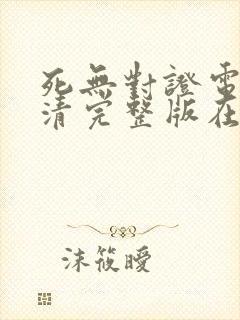 死無對證電
清完整版在
沫筱曖